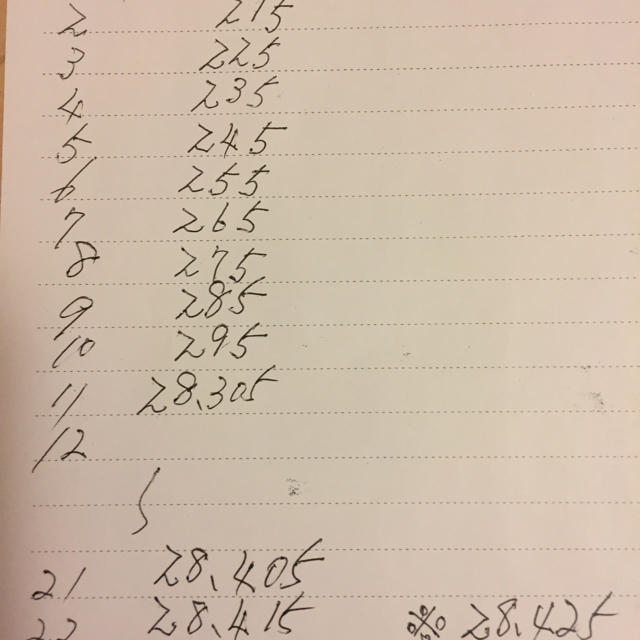 2 215
3 225
4 235
5 245
6 255
7 265
8 275
9 285
10 295
11 28.305
12
21 28.405
22 28.415 28.425